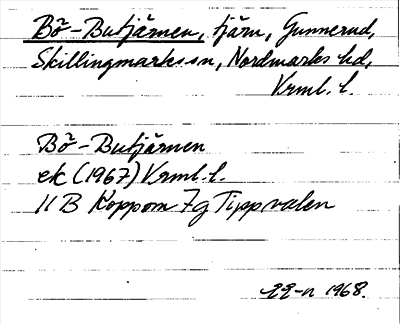 Bö-Butjärnen, tjärn, Gunnerud,
Skillingmarks sn, Nordmarks hd,
Vrml. l.
Bö-Butjärnen
ek (1967) Vrml. l.
11B Koppom 7g Tippvalen
1968.